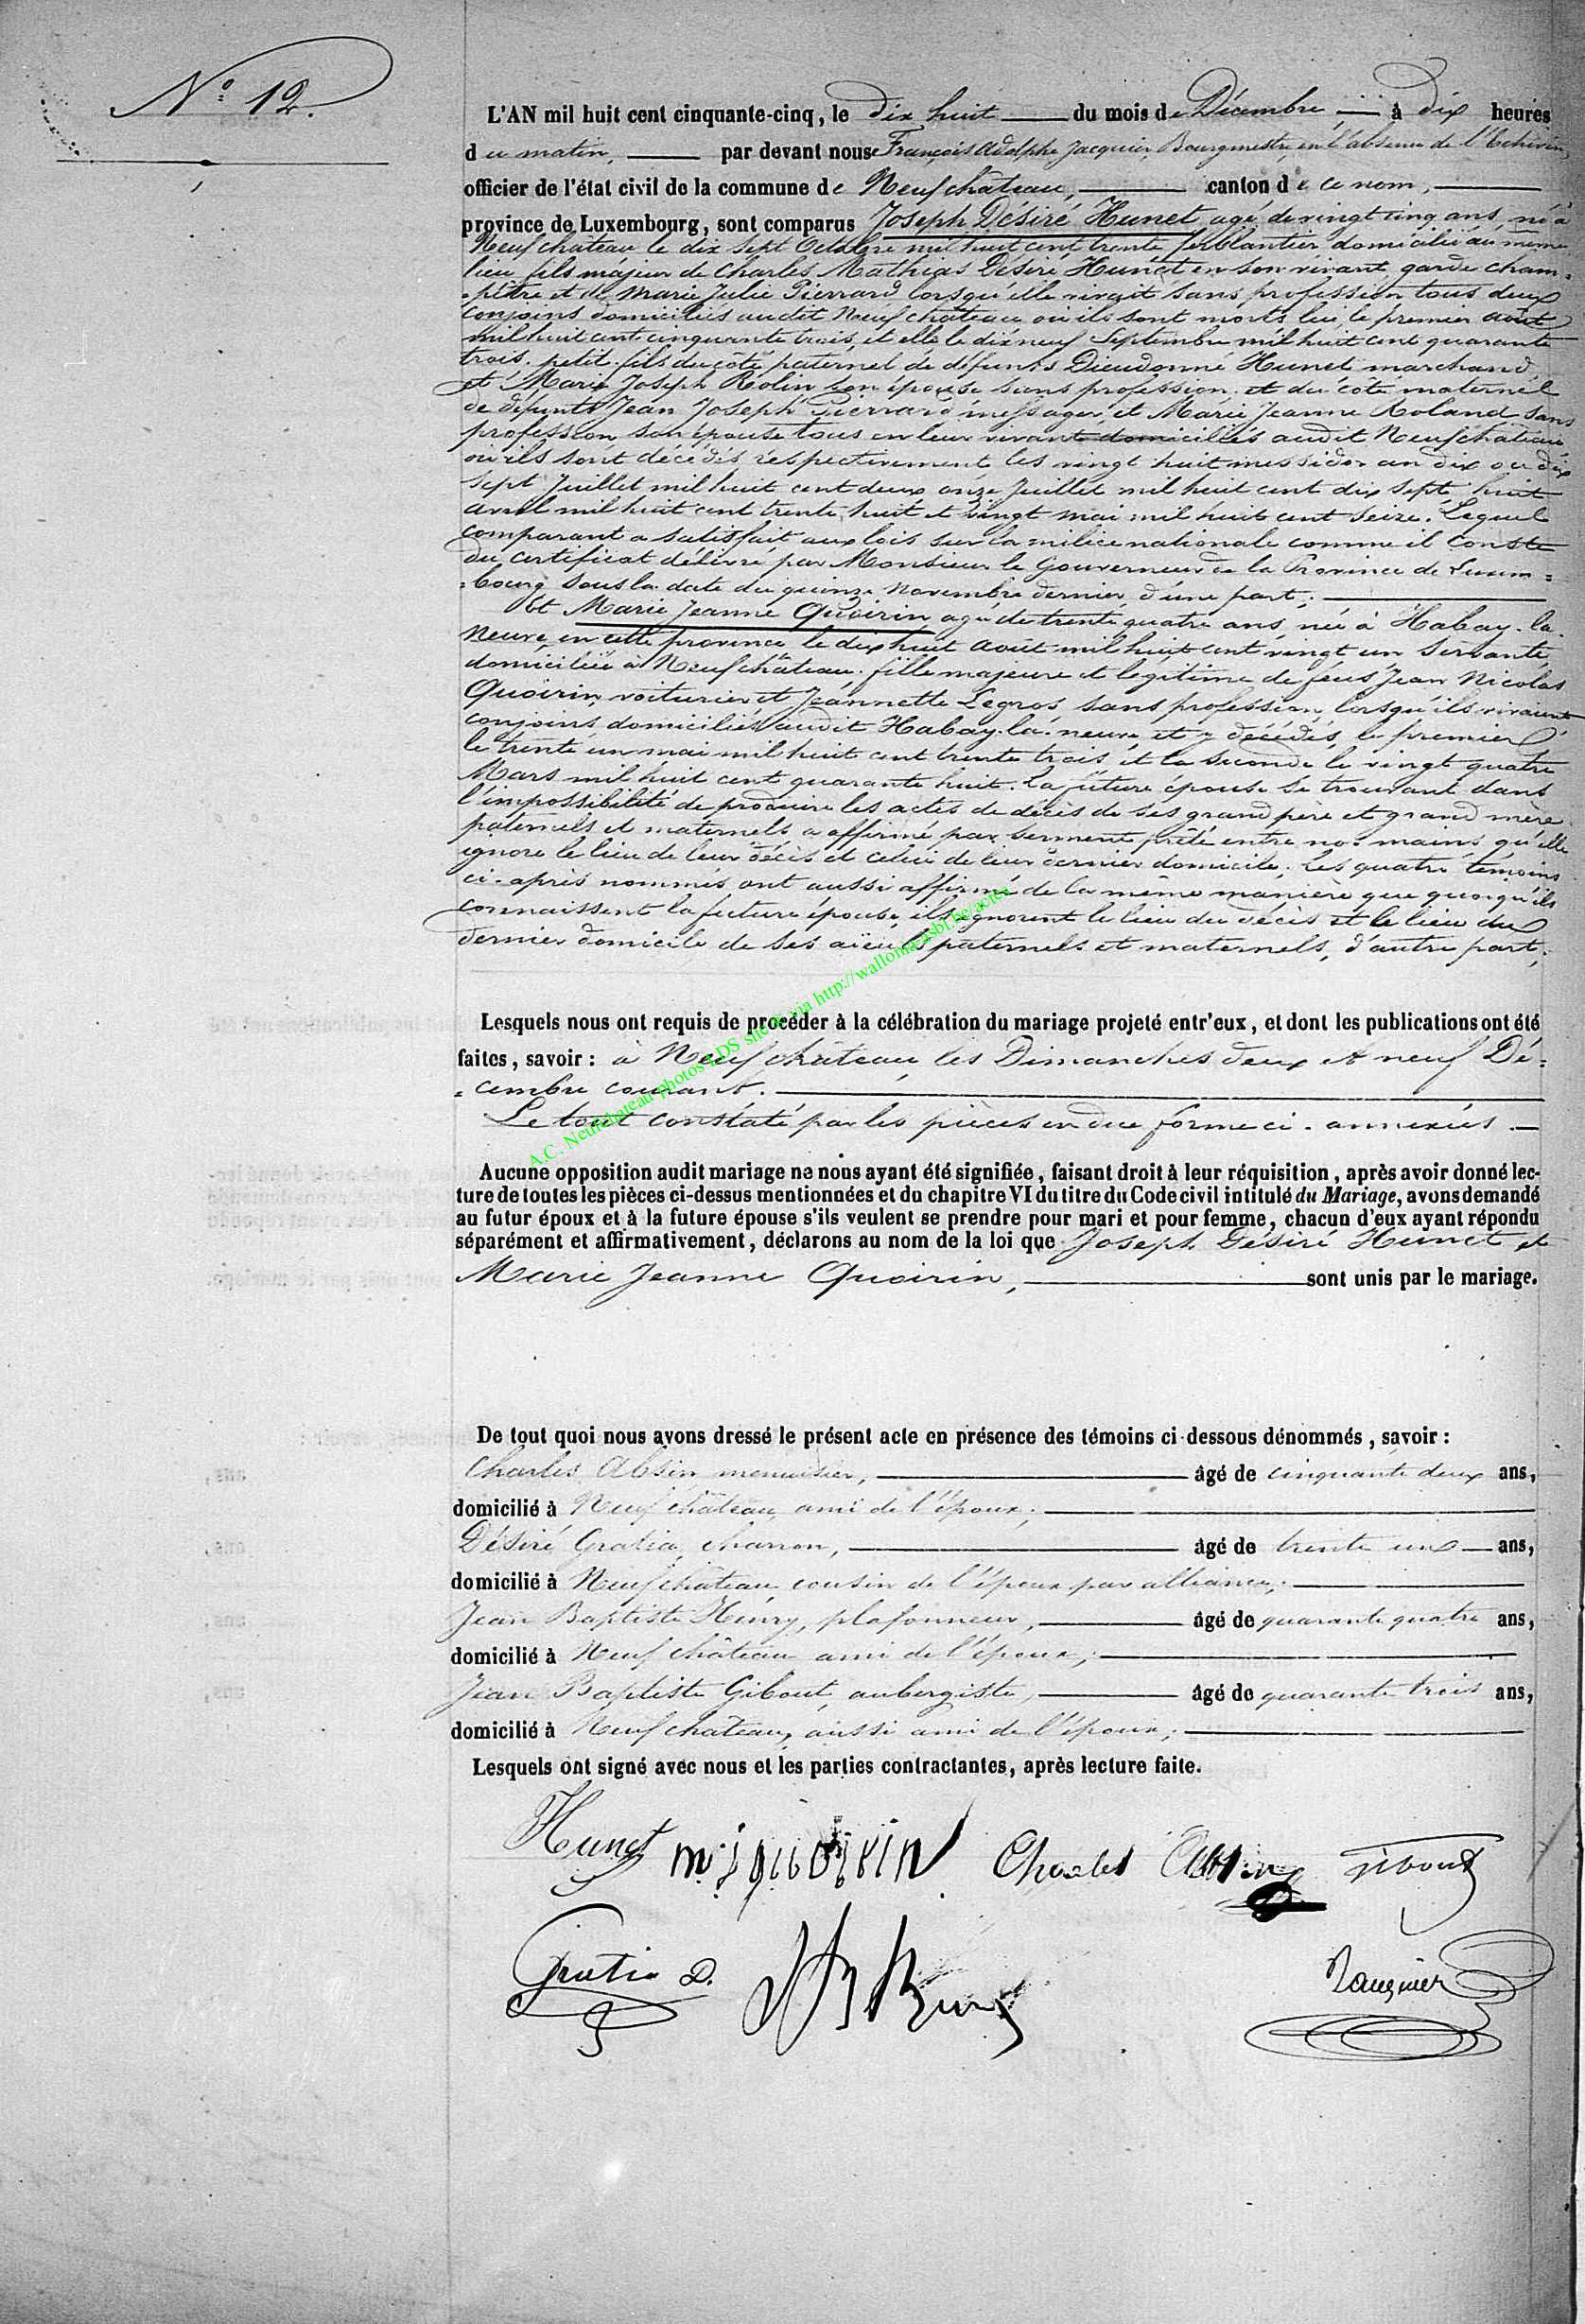 N° 12.
L'AN mil huit cent cinquante-cinq, le dix huit du mois de Décembre, à dix heures
du matin, par devant nous François Adolphe Jacquier, Bourgmestre, en l'absence de l'Echevin,
officier de l'état civil de la commune de Neufchâteau, canton de ce nom,
province de Luxembourg, sont comparus Joseph Désiré Hunet, agé de vingt cinq ans, né à
Neufchâteau le dix sept Octobre mil huit cent trente, ferblantier domicilié au même
lieu, fils majeur de Charles Mathias Désiré Hunet en son vivant garde cham=
=pêtre et de Marie Julie Pierrard lorsqu'elle vivait sans profession tous deux
conjoins domiciliés audit Neufchâteau où ils sont morts lui, le premier août
mil huit cent cinquante trois, et elle le dix neuf Septembre mil huit cent quarante
trois. petit-fils du côté paternel de défunts Dieudonné Hunet marchand
et Marie Joseph Rolin son épouse sans profession. et du côté maternel
de défunts Jean Joseph Pierrard messager, et Marie Jeanne Roland sans
profession son épouse tous en leur vivant domiciliés audit Neufchâteau
où ils sont décédés respectivement, les vingt huit messidor an dix ou dix
sept Juillet mil huit cent deux, onze Juillet mil huit cent dix sept, huit
avril mil huit cent trente huit et vingt mai mil huit cent seize. Lequel
comparant a satisfait aux lois sur la milice nationale comme il conste
du certificat délivré par Monsieur le Gouverneur de la Province de Luxem=
=bourg sous la date du quinze Novembre dernier, d'une part;
Et Marie Jeanne Quoirin, agée de trente quatre ans, née à Habay-la-
Neuve, en cette province le dix huit août mil huit cent vingt un, servante
domiciliée à Neufchâteau. fille majeure et légitime de feus Jean Nicolas
Quoirin, voiturier et Jeannette Legros, sans profession, lorsqu'ils vivaient
conjoins, domiciliés audit Habay-la-neuve, et y décédés, le premier
le trente un mai mil huit cent trente trois et la seconde le vingt quatre
Mars mil huit cent quarante huit. La future épouse se trouvant dans
l'impossibilité de produire les actes de décès de ses grand père et grand mère
paternels et maternels a affirmé par serment prêté entre nos mains qu'elle
ignore le lieu de leur décès et celui de leur dernier domicile. Les quatre témoins
ci-après nommés ont aussi affirmé de la même manière que quoiqu'ils
connaissent la future épouse, ils ignorent le lieu du décès et le lieu du
dernier domicile de ses aïeuls paternels et maternels, d'autre part;
A.C. Neufchateau photos LDS site & via http://wallonia.asbl.be/actes
Lesquels nous ont requis de procéder à la célébration du mariage projeté entr'eux, et dont les publications ont été
faites, savoir : à Neufchâteau, les Dimanches deux et neuf Dé=
=cembre courant.
Le tout constaté par les pièces en due forme ci-annexées.
Aucune opposition audit mariage ne nous ayant été signifiée, faisant droit à leur réquisition, après avoir donné lec-
ture de toutes les pièces ci-dessus mentionnées et du chapitre VI du titre du Code civil intitulé du Mariage, avons demandé
au futur époux et à la future épouse s'ils veulent se prendre pour mari et pour femme, chacun d'eux ayant répondu
séparément et affirmativement, déclarons au nom de la loi que Joseph Désiré Hunet et
Marie Jeanne Quoirin, sont unis par le mariage.
De tout quoi nous avons dressé le présent acte en présence des témoins ci-dessous dénommés, savoir :
Charles Absin, menuisier, âgé de cinquante deux ans,
domicilié à Neufchâteau, ami de l'époux;
Désiré Gratia, charron, âgé de trente un ans,
domicilié à Neufchâteau, cousin de l'époux par alliance;
Jean Baptiste Henry, plafonneur, âgé de quarante quatre ans,
domicilié à Neufchâteau ami de l'époux;
Jean Baptiste Gibout, aubergiste, âgé de quarante trois ans,
domicilié à Neufchâteau, aussi ami de l'époux;
Lesquels ont signé avec nous et les parties contractantes, après lecture faite.
Hunet mj quoirin Charles Absin Gibout
Gratia D. Jacquier